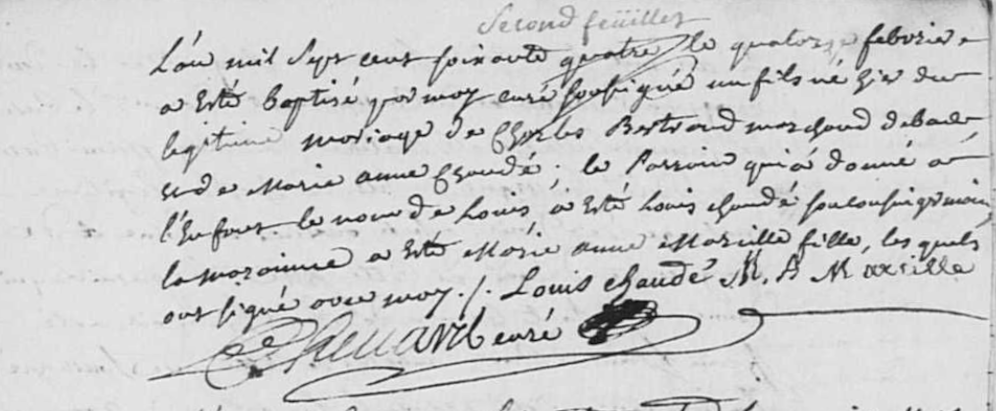 Second feüillet
L'an mil Sept cent soixante quatre le quatorze febvrier
a esté baptisé par moy curé soussigné un fils né hier du
legitime mariage de Charles Bertrand marchand de bade
et de Marie anne Chaudé. le Parrain qui a donné a
l'Enfant le nom de Louis a esté Louis chaudé son cousin germain
la maraine a esté Marie anne Marcille fille, les quels
ont signé avec moy ./. Louis chaudé M. A Marcille
curé